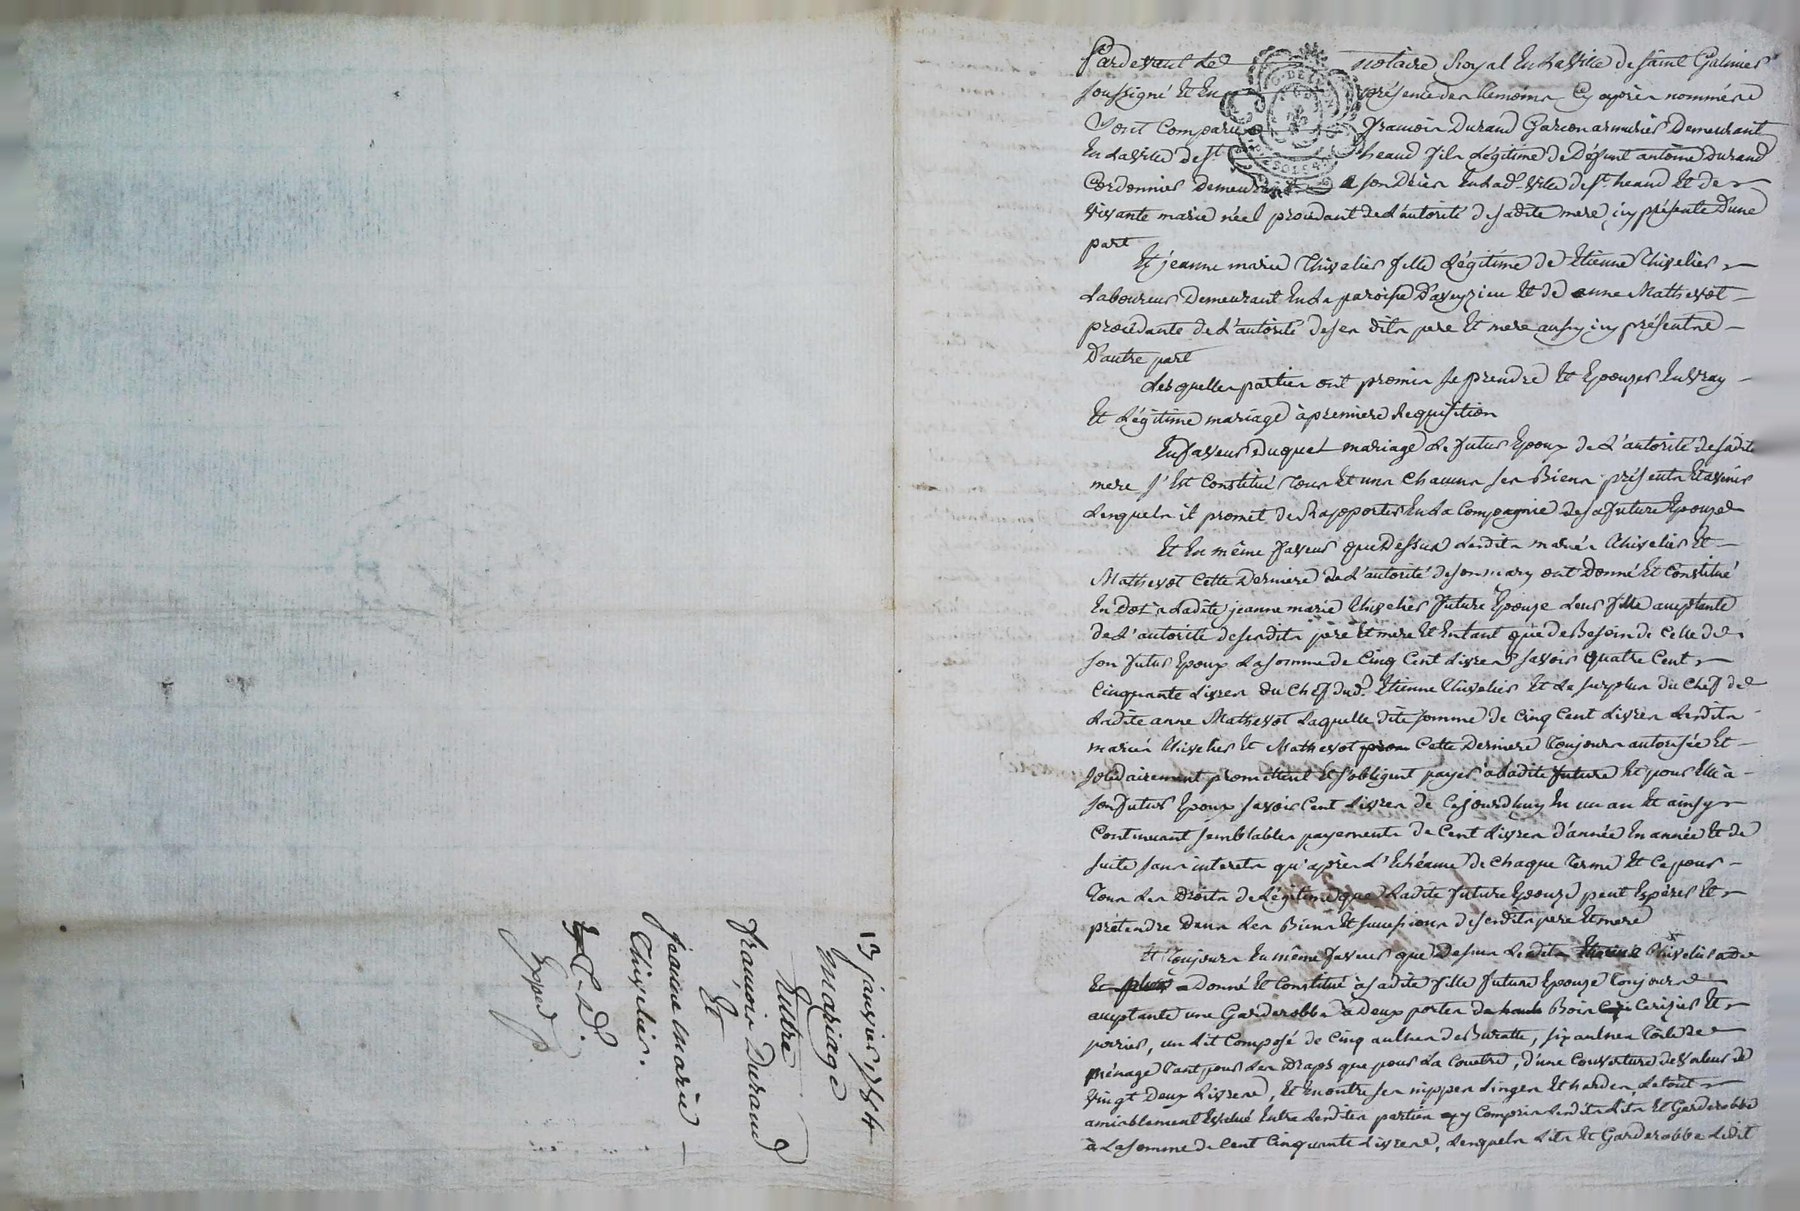 13 janvier 1784
Mariage
Entre
françois Durand
Et
jeanne marie
Thivelier.
C. D.
Exped
Pardevant Le notaire Royal En La Ville de saint Galmier
soussigné Et En présence des temoins Cy après nommés
Sont Comparus françois Durand Garçon armurier Demeurant
En La Ville de St. heand fils Légitime de Défunt antoine Durand
Cordonnier Demeurant a son Décès En Lad. Ville de St. heand Et de
vivante marie néel procédant de L'autorité de sadite mere icy présente D'une
part
Et jeanne marie Thivelier fille Légitime de Etienne Thivelier
Laboureur Demeurant En La paroisse D'aveyzieu Et de anne Mathevot
procédante de L'autorité de ses dits pere Et mere aussy icy présents
D'autre part
Lesquelles parties ont promis se prendre Et Epouzer En vray
Et Légitime mariage à premiere Requisition
En faveur duquel mariage Le futur Epoux de L'autorité de sadite
mere s'Est Constitué tous Et uns Chacuns ses Biens présents Et avenir
Lesquels il promet de Rapporter En La Compagnie de sa future Epouze
Et En même faveur que Dessus Lesdits mariés Thivelier Et
Mathevot Cette Derniere de L'autorité de son mary ont Donné Et Constitué
En Dot à Ladite jeanne marie Thivelier future Epouze Leur fille acceptante
de L'autorité de sesdits pere Et mere Et En tant que de Besoin de Celle de
son futur Epoux La somme de Cinq Cent Livres savoir quatre Cent
Cinquante Livres du Chef dud. Etienne Thivelier Et Le surplus du Chef de
Ladite anne Mathevot Laquelle dite somme de Cinq Cent Livres Lesdits
mariés Thivelier Et Mathevot Cette Derniere toujours autorisée Et
solidairement promettent Et s'obligent payer à Ladite future Et pour Elle à
son futur Epoux savoir Cent Livres de Cejourdhuy En un an Et ainsy
Continuant semblables payements de Cent Livres d'année En année Et de
suite sans interets qu'après L'Echéance de Chaque terme Et Ce pour
tous Les Droits de Légitime que Ladite future Epouze peut Espérer Et
prétendre Dans Les Biens Et successions de sesdits pere Et mere
Et toujours En même faveur que Dessus Ledit Thivelier a de
Et plus a Donné Et Constitué à sadite fille future Epouze toujours
acceptante une Garderobbe à Deux portes de Bois Cerizier Et
poirier, un Lit Composé de Cinq aulnes de Buratte, six aulnes toile de
ménage tant pour Les Draps que pour La Couetre, d'une Couverture de valeur de
vingt Deux Livres, Et En outre ses nippes Linges Et hardes, Le tout
amiablement Evalué Entre Lesdites parties y Compris Lesdits Lits Et Garderobbe
à La somme de Cent Cinquante Livres, Lesquels Lits Et Garderobbe Ledit